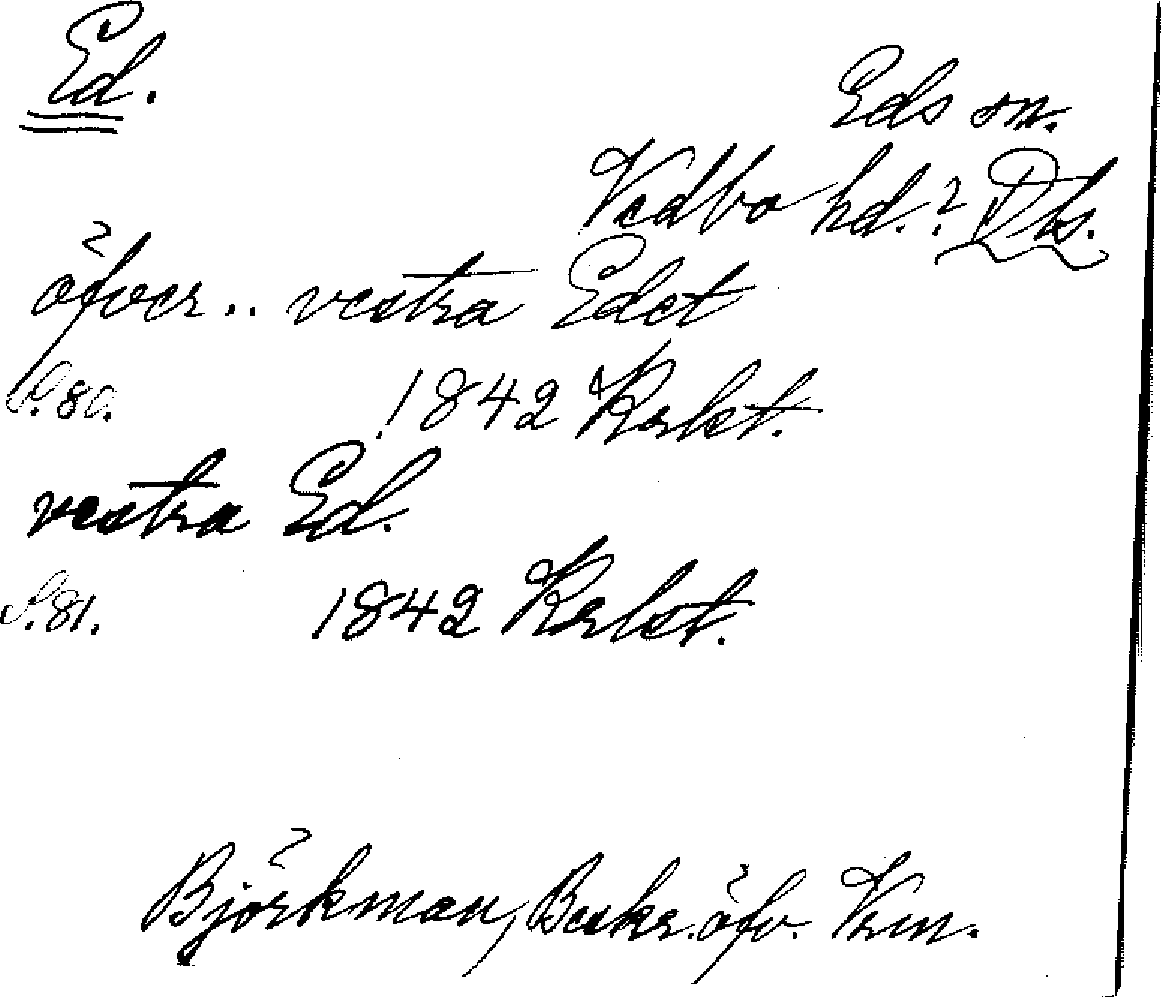 Ed.
Eds sn.
Vedbo hd.? Dls.
öfver .. vestra Edet
S. 80. 1842 Karlst.
vestra Ed.
S. 81. 1842 Karlst.
Björkman, Beskr. öfv. Vrm.